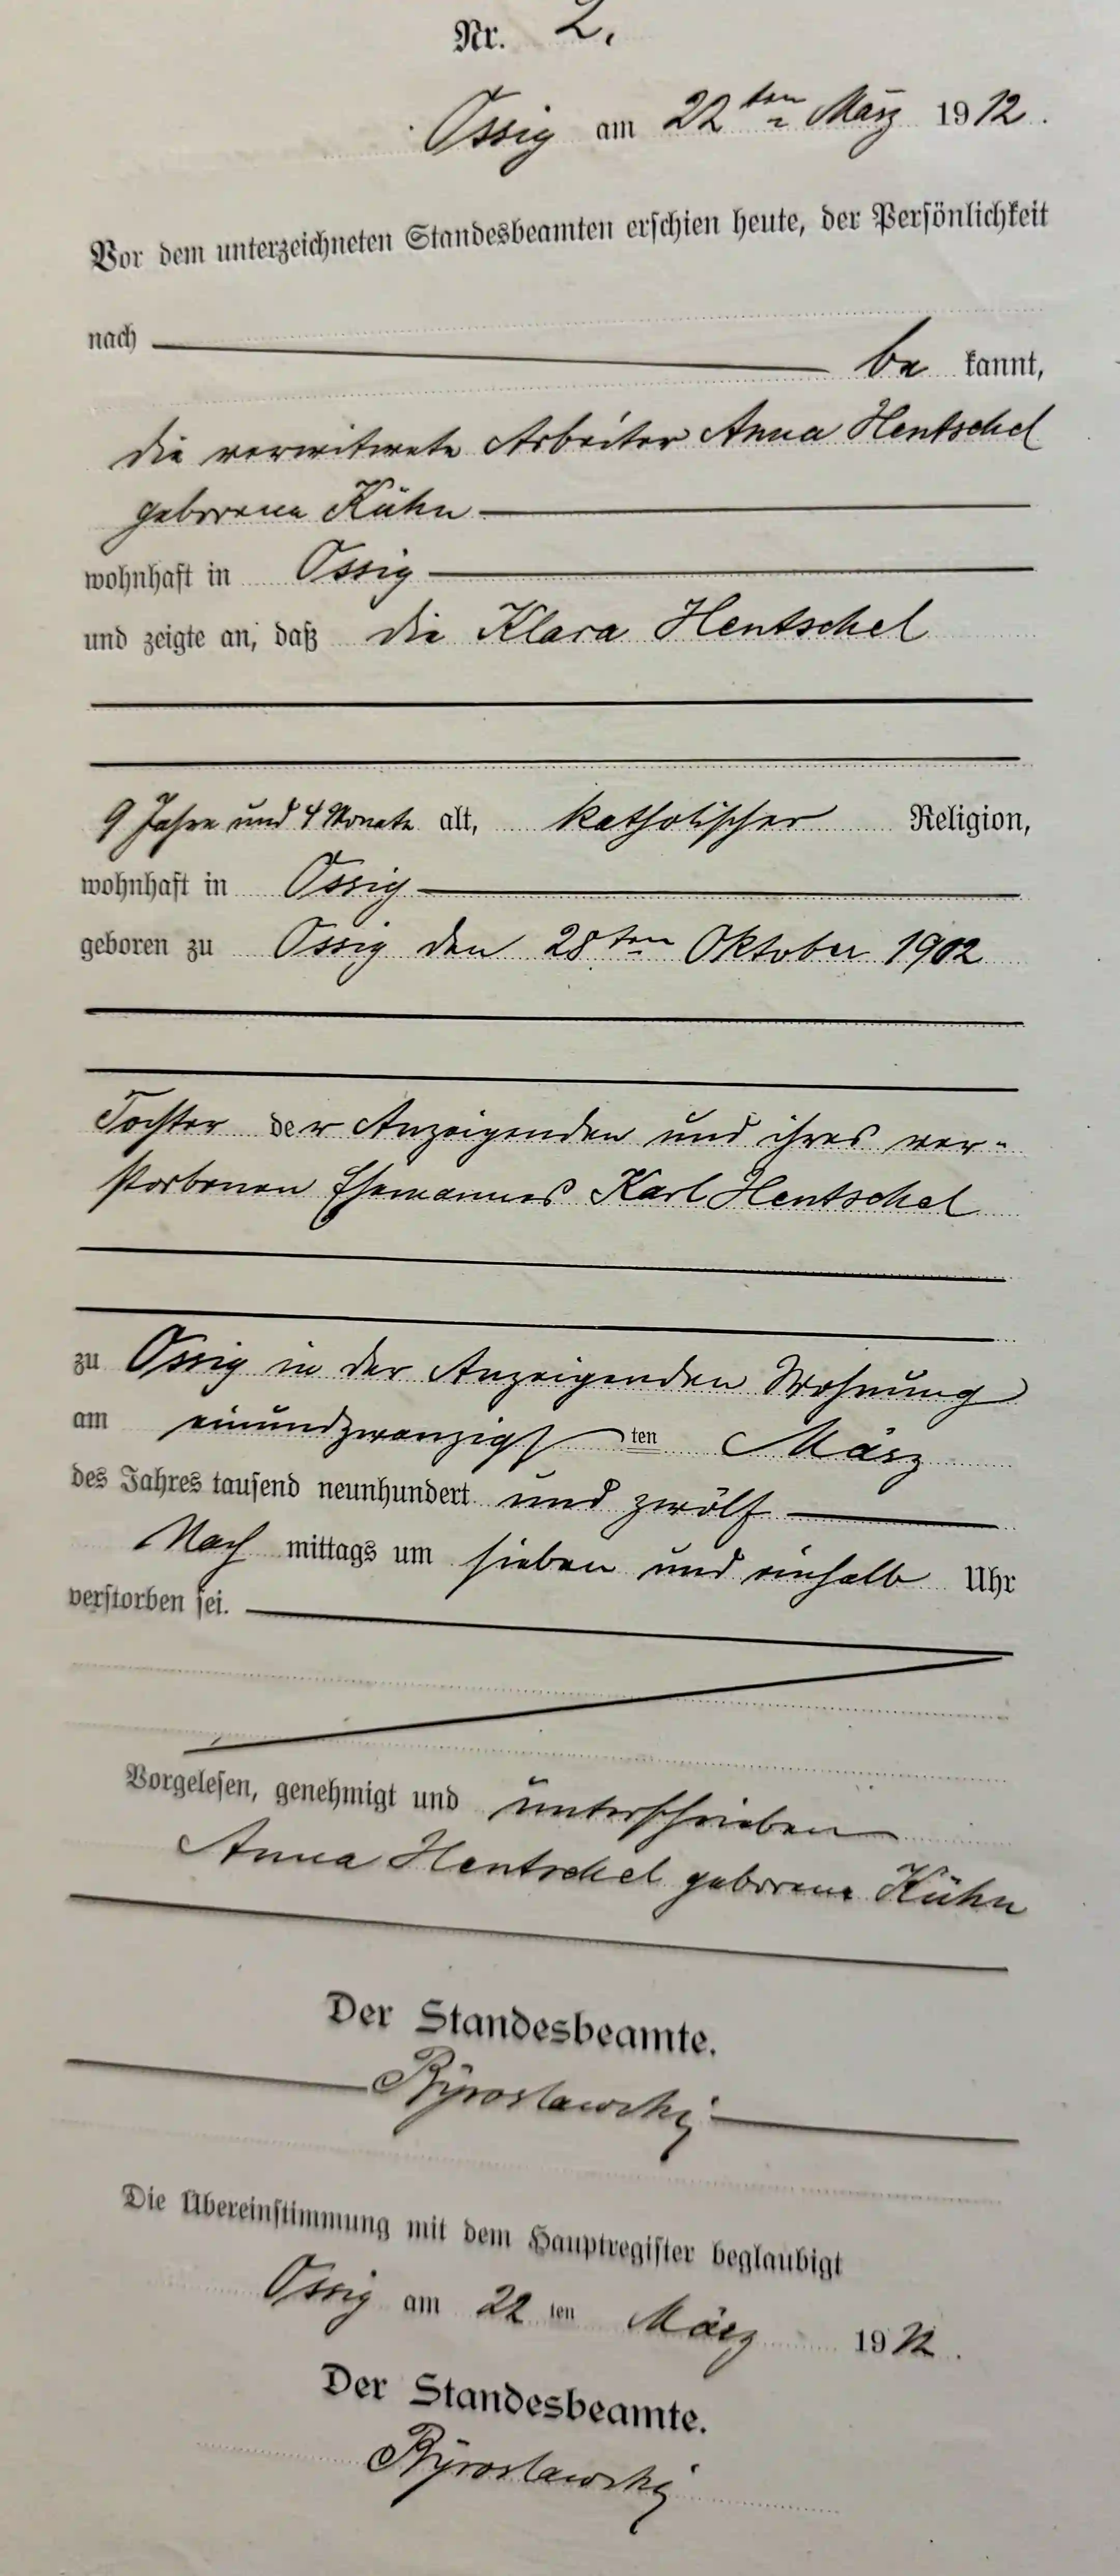 Nr. 2.
Ossig am 22ten März 1912.
Vor dem unterzeichneten Standesbeamten erschien heute, der Persönlichkeit
nach be kannt,
die verwitwete Arbeiter Anna Hentschel
geborene Kühn
wohnhaft in Ossig
und zeigte an, daß die Klara Hentschel
9 Jahre und 4 Monate alt, katholischer Religion,
wohnhaft in Ossig
geboren zu Ossig den 28ten Oktober 1902
Tochter der Anzeigenden und ihres ver-
storbenen Ehemannes Karl Hentschel
zu Ossig in der Anzeigenden Wohnung
am einundzwanzigsten März
des Jahres tausend neunhundert und zwölf
Nach mittags um sieben und einhalb Uhr
verstorben sei.
Vorgelesen, genehmigt und unterschrieben
Anna Hentschel geborene Kühn
Der Standesbeamte.
Die Übereinstimmung mit dem Hauptregister beglaubigt
Ossig am 22 ten März 1912.
Der Standesbeamte.